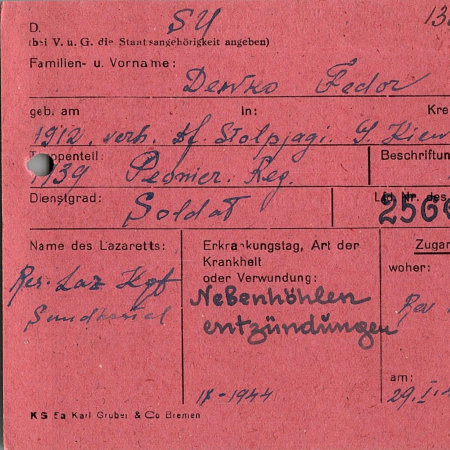 D. SU 13
(bei V. u. G. die Staatsangehörigkeit angeben)
Familien- u. Vorname:
Denko Fedor
geb. am in: Kre
1912. verh. Df. Stolpjagi. G Kiew
Truppenteil: Beschriftun
1139 Peonier. Reg.
Dienstgrad: Lfd. Nr. des
Soldat 2566
Name des Lazaretts: Erkrankungstag, Art der Krankheit oder Verwundung: Zugan
woher:
Res. Laz Kgf
Nebenhöhlen
entzündungen
Res
1944
am:
29.I.
KS 5a Karl Gruber & Co Bremen